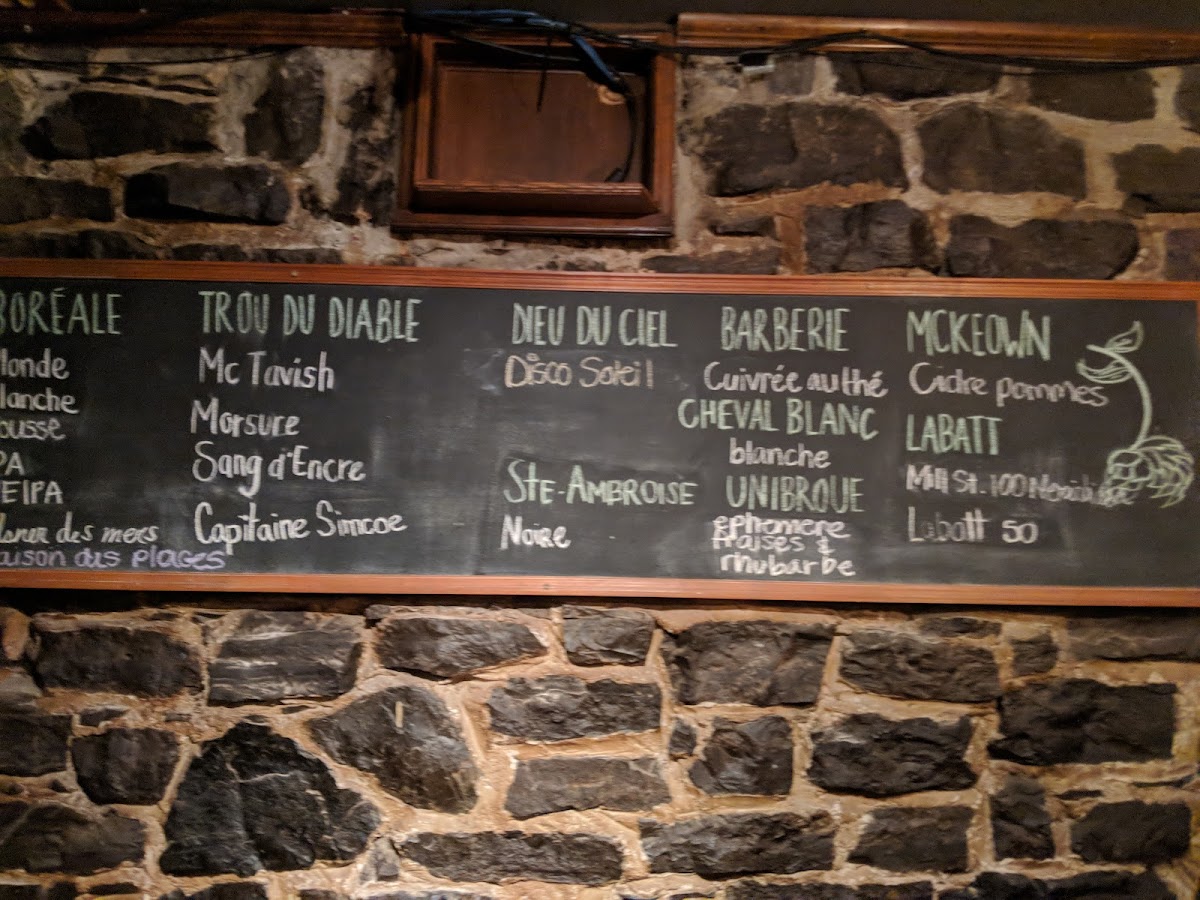 BORÉALE
londe
lanche
ousse
PA
EIPA
des mers
aison des plages
TROU DU DIABLE
Mc Tavish
Morsure
Sang d'Encre
Capitaine Simcoe
DIEU DU CIEL
Disco Soleil
STE-AMBROISE
Noire
BARBERIE
Cuivrée au thé
CHEVAL BLANC
blanche
UNIBROUE
ephemere
fraises &
rhubarbe
MCKEOWN
Cidre pommes
LABATT
Mill St. 100
Labatt 50